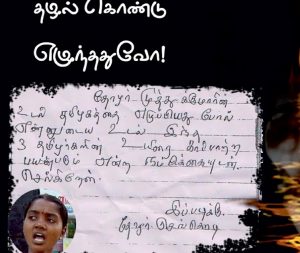 தழல் கொண்டு
எழுந்ததுவோ!
தோழர் முத்து குமாரின்
உடல் தமிழகத்தை எழுப்பியது போல்
என்னுடைய உடல் இந்த
3 தமிழர்களின் உயிரை காப்பாற்ற
பயன்படும் என்ற நம்பிக்கையுடன்
செல்கிறேன்.
இப்படிக்கு
தோழர் செங்கொடி